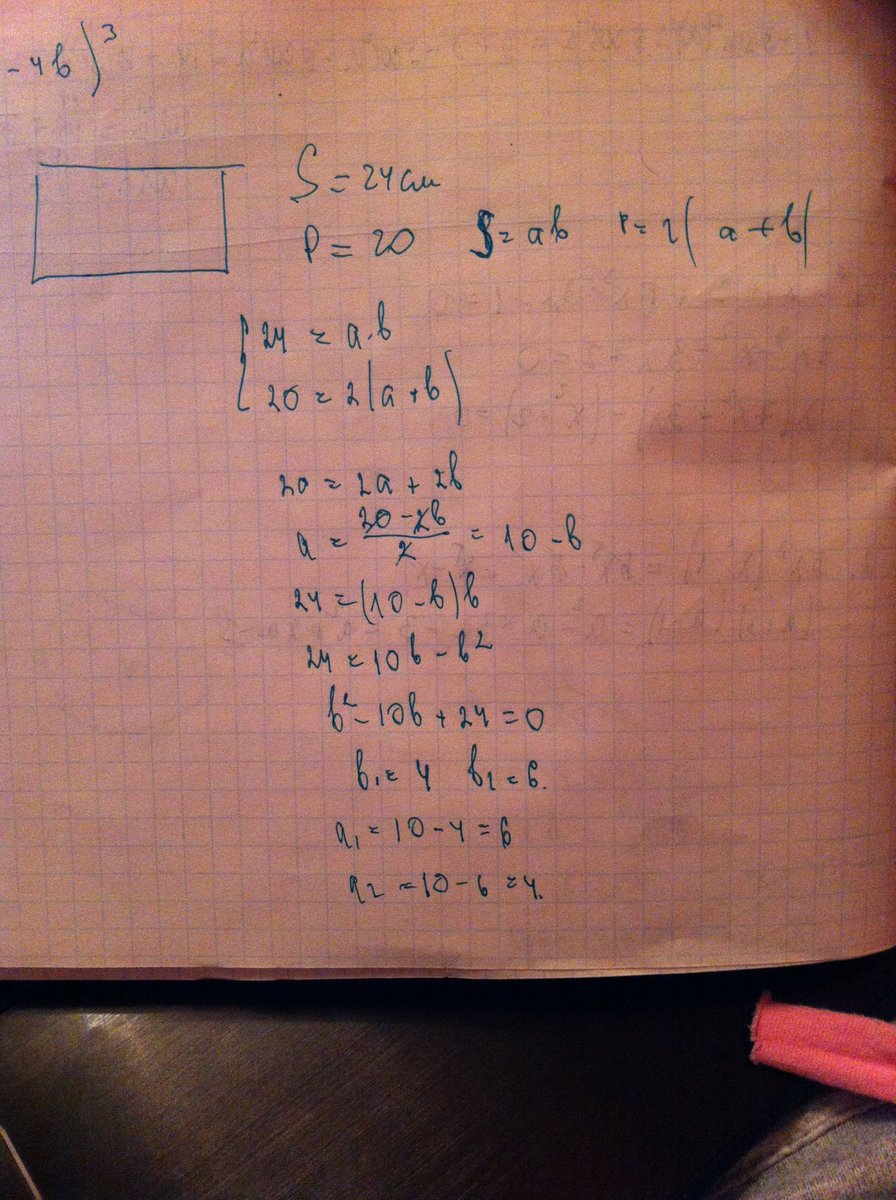 - 4b)³
S = 24 см
P = 20 S = ab P = 2(a + b)
{ 24 = a · b
20 = 2(a + b)
20 = 2a + 2b
a = (20 - 2b)/2 = 10 - b
24 = (10 - b)b
24 = 10b - b²
b² - 10b + 24 = 0
b₁ = 4 b₂ = 6.
a₁ = 10 - 4 = 6
a₂ = 10 - 6 = 4.